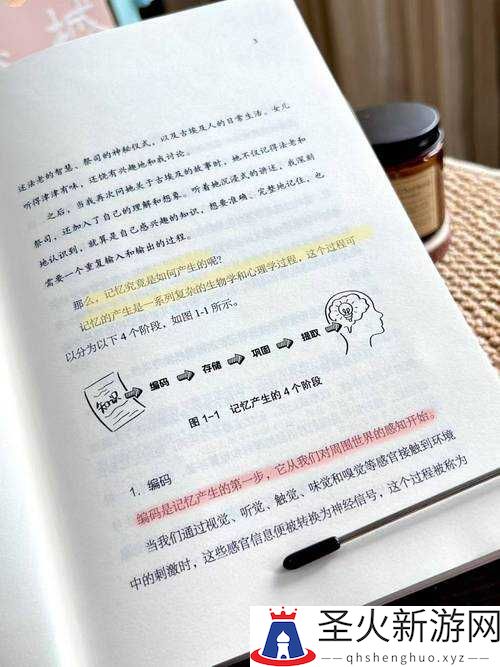 3
述法老的智慧、祭司的神秘仪式，以及古埃及人的日常生活。女儿
听得津津有味，还饶有兴趣地和我讨论。
之后，当我再次问她关于古埃及的故事时，她不仅记得法老和
祭司，还加入了自己的理解和想象。听着她沉浸式的讲述，我深刻
地认识到，就算是自己感兴趣的知识，想要准确、完整地记住，也
需要一个重复输入和输出的过程。
那么，记忆究竟是如何产生的呢？
记忆的产生是一系列复杂的生物学和心理学过程，这个过程可
以分为以下4个阶段，如图1-1所示。
知识 编码 存储 巩固 提取
图1-1 记忆产生的4个阶段
1. 编码
编码是记忆产生的第一步，它从我们对周围世界的感知开始。
当我们通过视觉、听觉、触觉、味觉和嗅觉等感官接触到环境
中的刺激时，这些感官信息便被转换为神经信号，这个过程被称为
圣火新游网
qhshenghuo.xyz